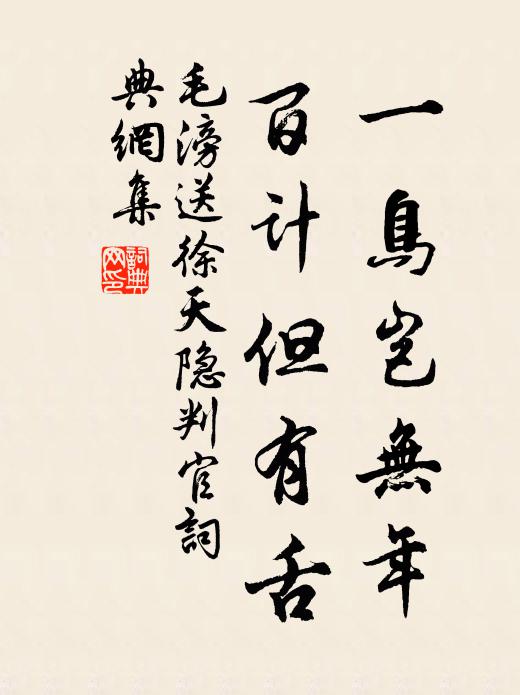 一鳥豈無年
百計但有舌
毛滂送徐天隐判官詞
典網集
詞典網印